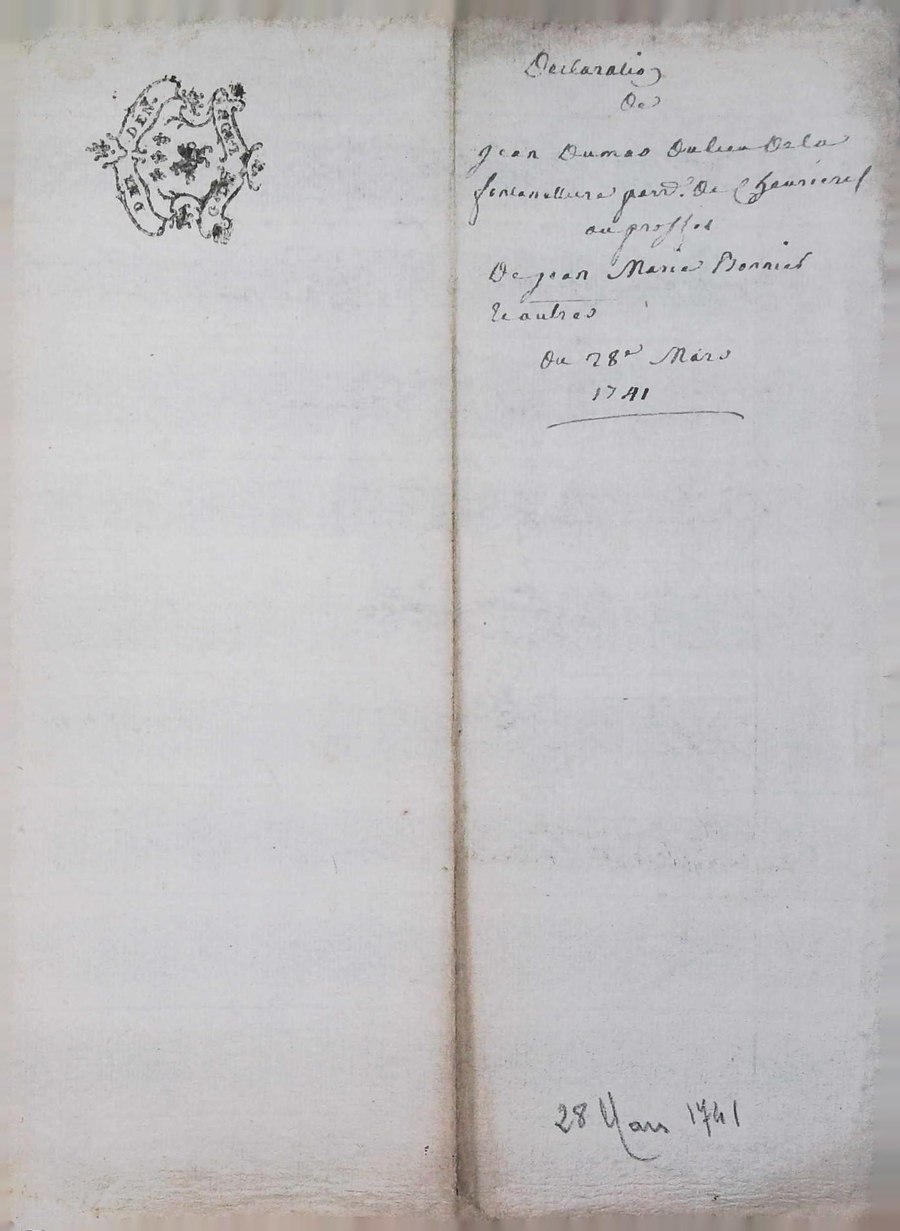 Declaration
de
jean Dumas du lieu de la
fontanellure parr.e de Chaurieres
au proffit
De jean Marie Bonniel
Et autres
du 28e Mars
1741
28 Mars 1741